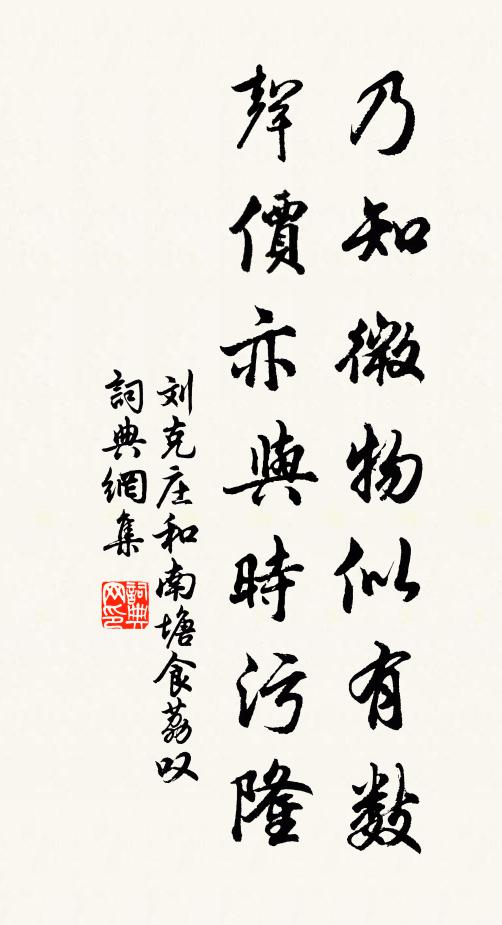 乃知微物似有数
聲價亦與時污隆
刘克庄和南塘食荔叹
詞典網集
詞典网印